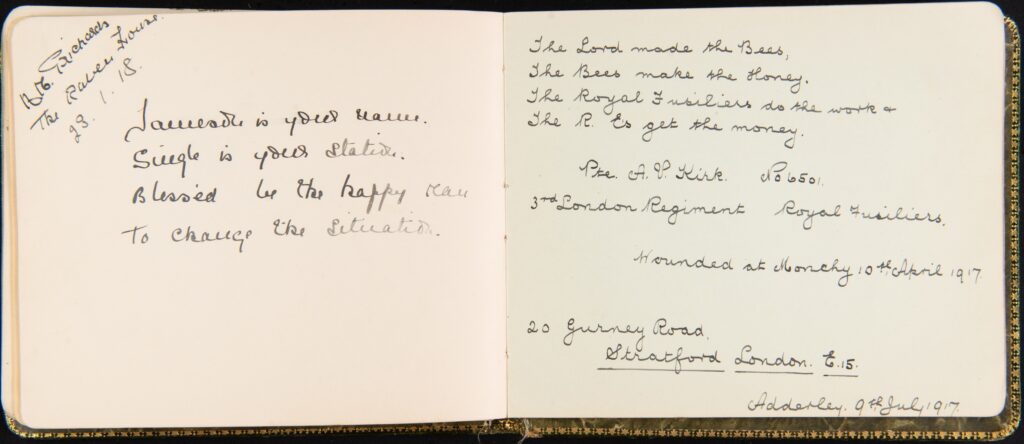 B.M. Richards
The Raven House.
23.1.18.
Jameson is your name.
Single is your station.
Blessed be the happy man
To change the situation.
The Lord made the Bees,
The Bees make the Honey.
The Royal Fusiliers do the work &
The R. Es get the money.
Pte. A. V. Kirk. No 6501.
3rd London Regiment Royal Fusiliers.
Wounded at Monchy 10th April 1917.
20 Gurney Road.
Stratford London. E.15.
Adderley. 9th July, 1917.